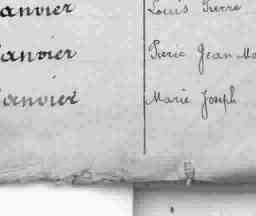 anvier Louis Pierre
anvier Pierre Jean Ma
Janvier Marie Joseph